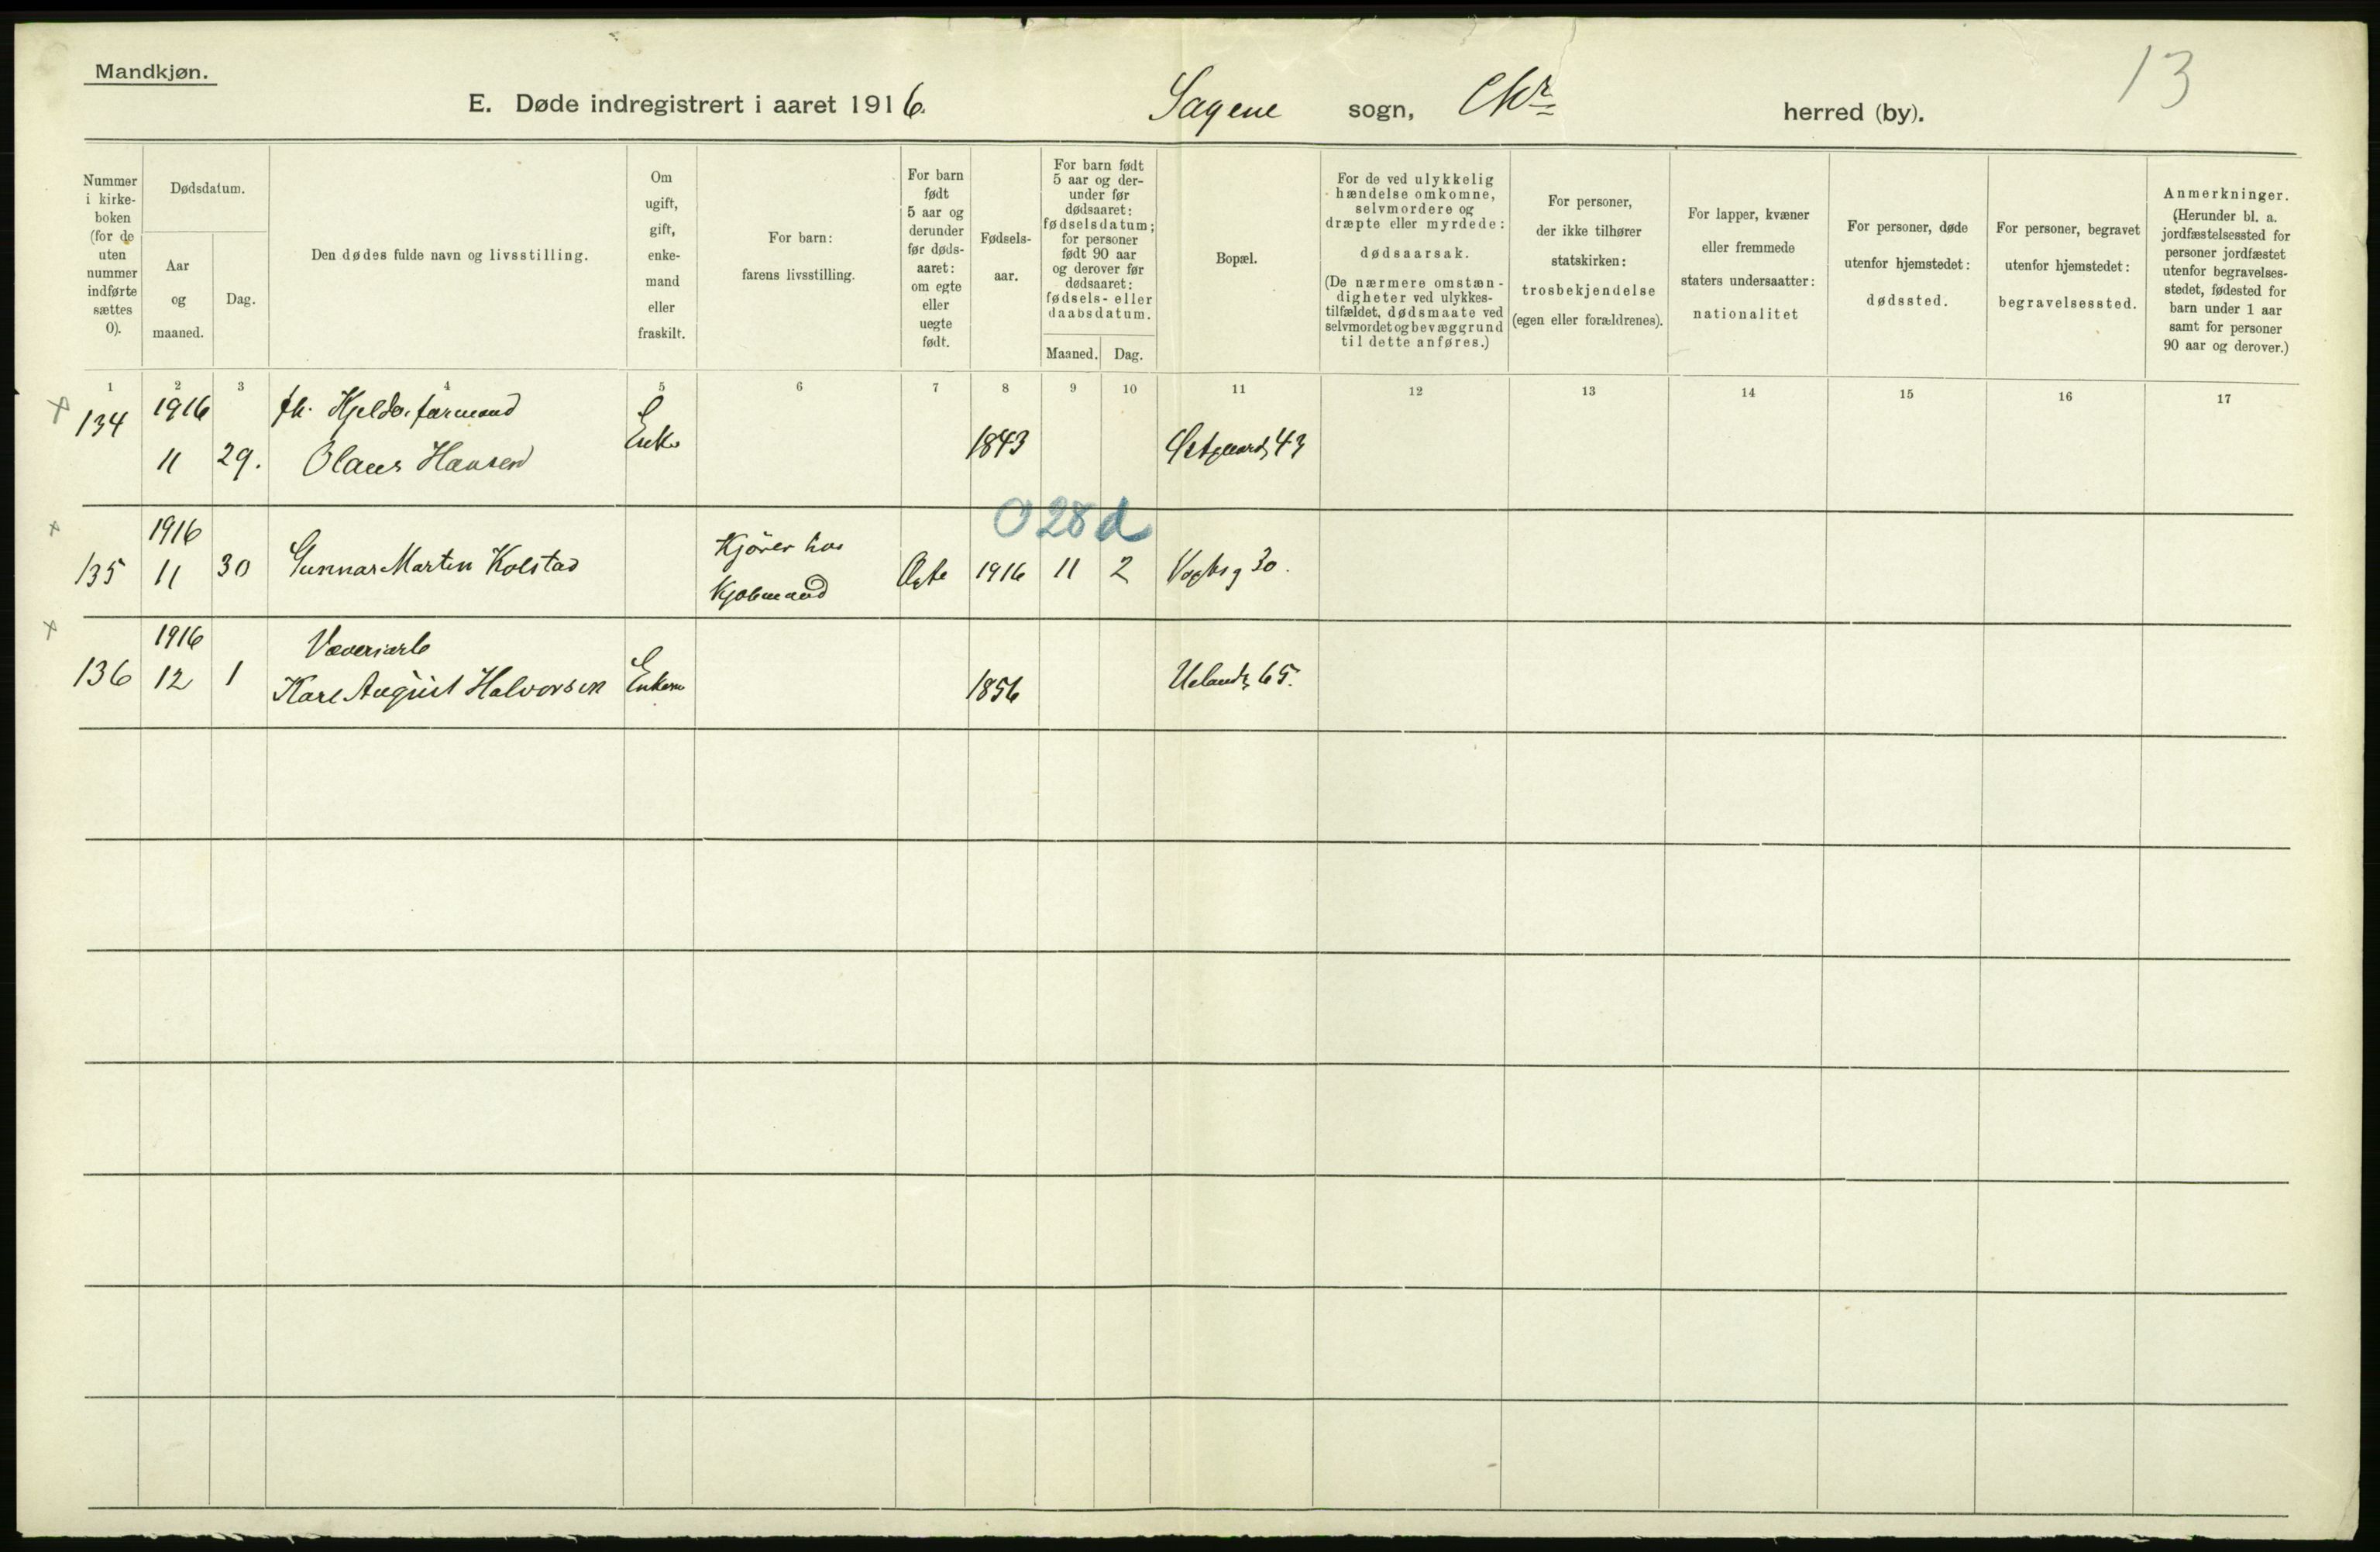 Mandkjøn.
13
E. Døde indregistrert i aaret 1916. Sagene sogn, Chr herred (by).
Nummer i kirke-boken (for de uten nummer indførte sættes 0).
Dødsdatum.
Aar og maaned.
Dag.
Den dødes fulde navn og livsstilling.
Om ugift, gift, enke-mand eller fraskilt.
For barn: farens livsstilling.
For barn født 5 aar og derunder før døds-aaret: om egte eller uegte født.
Fødsels-aar.
For barn født 5 aar og der-under før dødsaaret: fødselsdatum; for personer født 90 aar og derover før dødsaaret: fødsels- eller daabsdatum.
Maaned. Dag.
Bopæl.
For de ved ulykkelig hændelse omkomne, selvmordere og dræpte eller myrdede: dødsaarsak. (De nærmere omstæn-digheter ved ulykkes-tilfældet, dødsmaate ved selvmordet og bevæggrund til dette anføres.)
For personer, der ikke tilhører statskirken: trosbekjendelse (egen eller forældrenes).
For lapper, kvæner eller fremmede staters undersaatter: nationalitet
For personer, døde utenfor hjemstedet: dødssted.
For personer, begravet utenfor hjemstedet: begravelsessted.
Anmerkninger. (Herunder bl. a. jordfæstelsessted for personer jordfæstet utenfor begravelses-stedet, fødested for barn under 1 aar samt for personer 90 aar og derover.)
1 2 3 4 5 6 7 8 9 10 11 12 13 14 15 16 17
134 1916
11 29. Olaus Hansen Enke 1843 43
0 28 d
1916 Kjører hos
135 11 30 Gunnar Martin Kolstad Kjøbmand Ægte 1916 11 2 Vogtsg 30.
1916 Væveriarb
136 12 1 Karl August Halvorsen Enkem 1856 Uelands 65.